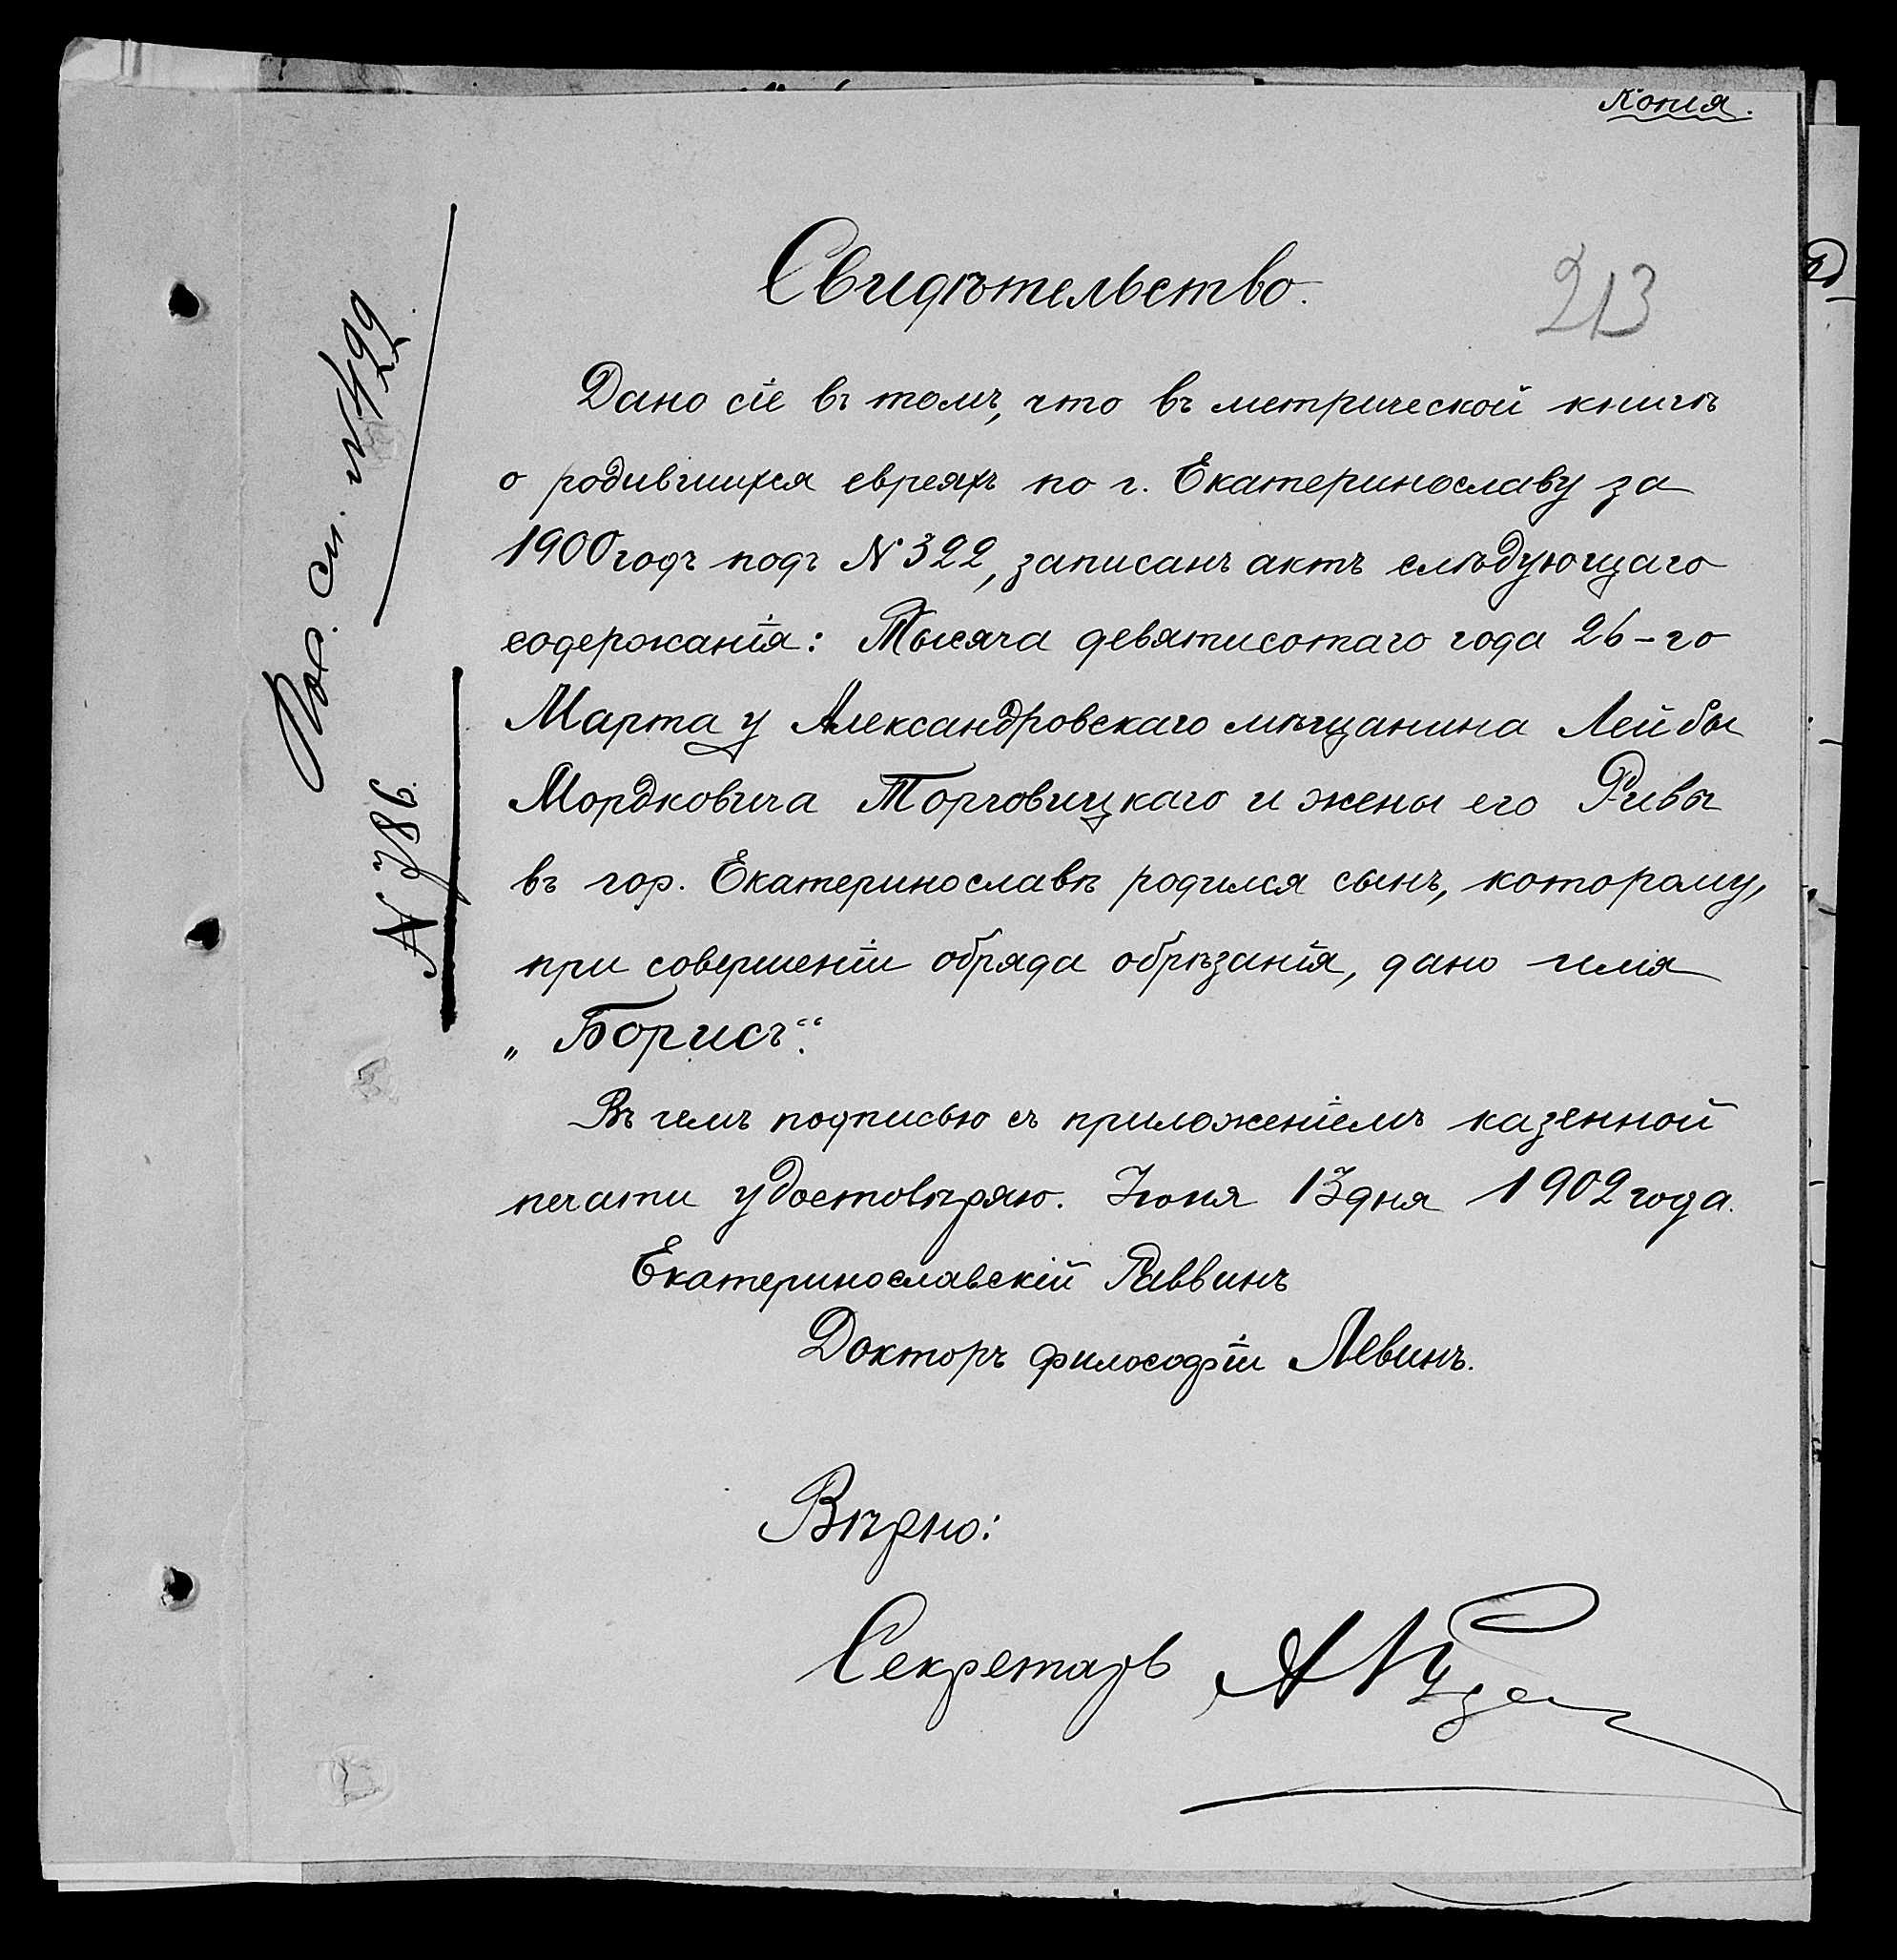 Копія.
Свидѣтельство.
213
Дано сіе въ томъ, что въ метрической книгѣ
о родившихся евреяхъ по г. Екатеринославу за
1900 годъ подъ № 322, записанъ актъ слѣдующаго
содержанія: Тысяча девятисотаго года 26-го
Марта у Александровскаго мѣщанина Лейбы
Мордковича Торговицкаго и жены его Ривы
въ гор. Екатеринославѣ родился сынъ, которому,
при совершеніи обряда обрѣзанія, дано имя
„Борисъ“.
Въ чемъ подписью съ приложеніемъ казенной
печати удостовѣряю. Іюня 13 дня 1902 года.
Екатеринославскій Раввинъ
Докторъ философіи Левинъ.
Вѣрно:
Секретарь
см. №
№ 786.